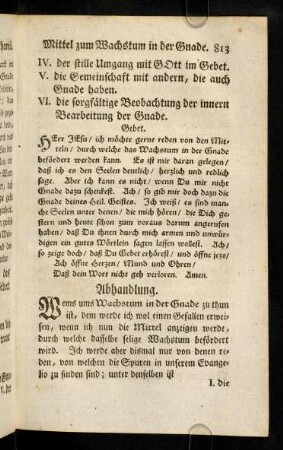 Mittel zum Wachstum in der Gnade. 813
IV. der stille Umgang mit GOtt im Gebet.
V. die Gemeinschaft mit andern, die auch
Gnade haben.
VI. die sorgfältige Beobachtung der innern
Bearbeitung der Gnade.
Gebet.
HErr JEsu/ ich möchte gerne reden von den Mit-
teln/ durch welche das Wachstum in der Gnade
befördert werden kann. Es ist mir daran gelegen/
daß ich es den Seelen deutlich/ herzlich und redlich
sage. Aber ich kann es nicht/ wenn Du mir nicht
Gnade dazu schenkest. Ach/ so gib mir doch dazu die
Gnade deines Heil. Geistes. Ich weiß/ es sind man-
che Seelen unter denen/ die mich hören/ die Dich ge-
stern und heute schon zum voraus darum angerufen
haben/ daß Du ihnen durch mich armen und unwür-
digen ein gutes Wörtlein sagen lassen wollest. Ach/
so zeige doch/ daß Du Geber erhörest/ und öffne jezo/
Ach öffne Herzen/ Mund und Ohren/
Daß dein Wort nicht geh verloren. Amen.
Abhandlung.
Wems ums Wachstum in der Gnade zu thun
ist, dem werde ich wol einen Gefallen erwei-
sen, wenn ich nun die Mittel anzeigen werde,
durch welche dasselbe selige Wachstum befördert
wird. Ich werde aber dismal nur von denen re-
den, von welchen die Spuren in unserem Evange-
lio zu finden sind; unter denselben ist
I. die